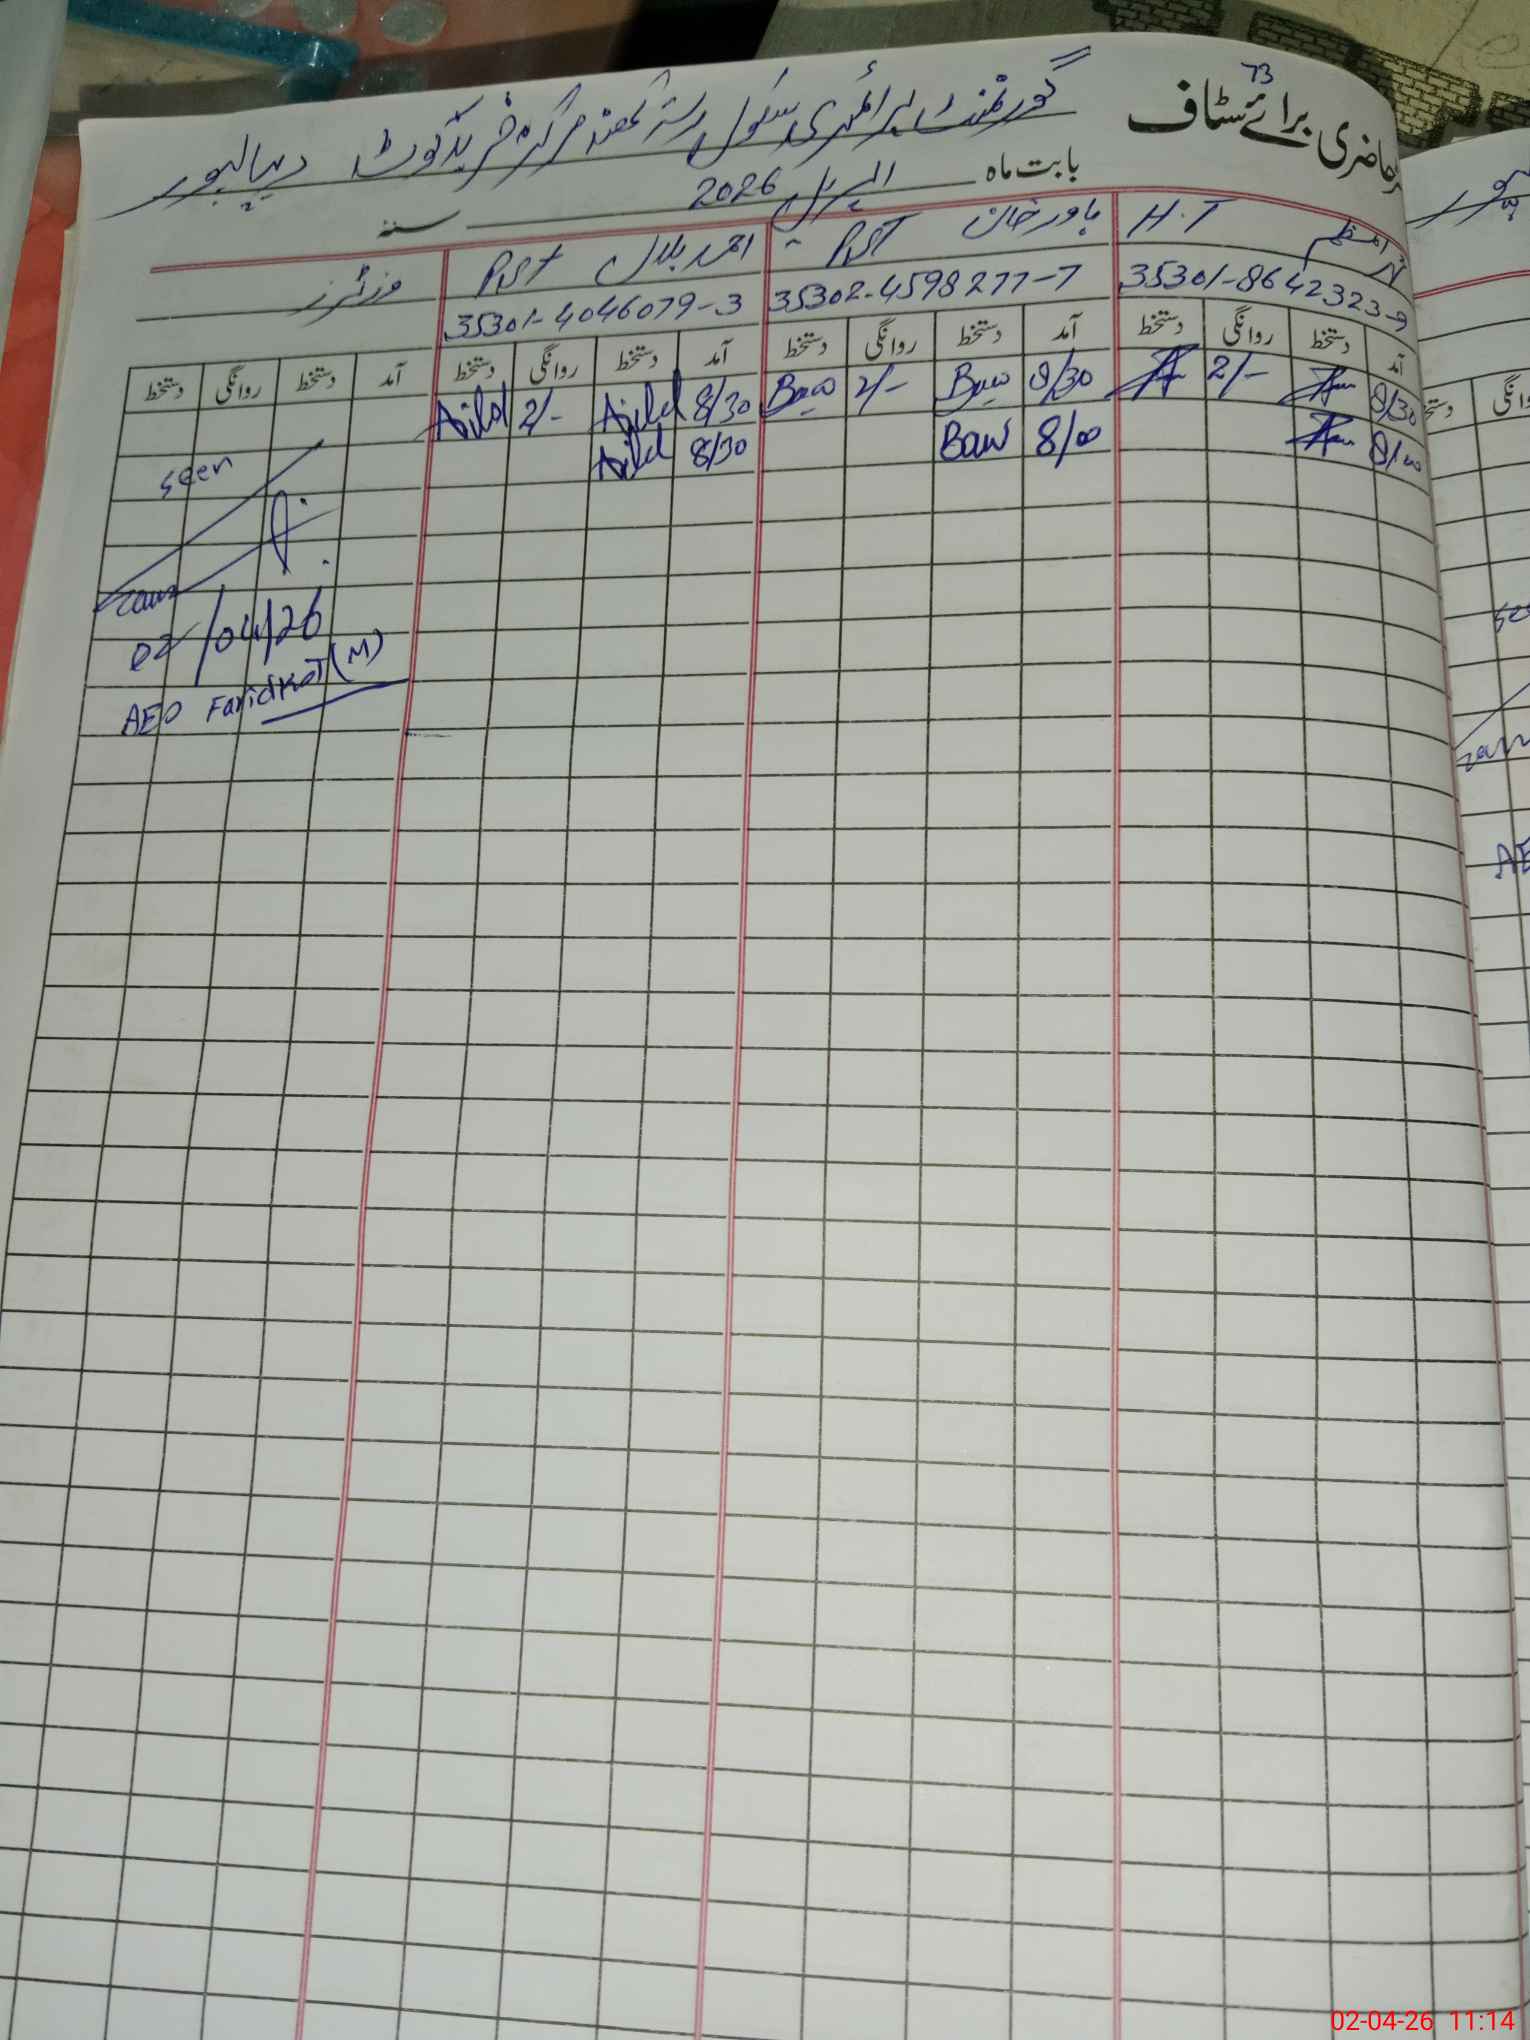 73
حاضری برائے سٹاف
گورنمنٹ پرائمری سکول رستہ کھنہ مرکز فریدکوٹ دیپالپور
بابت ماہ اپریل 2026 سنہ
H.T
یاور خان PST
احمد بلال PST
وزٹرز
35301-8642323-9
35302-4598277-7
35301-4046079-3
آمد دستخط روانگی دستخط آمد دستخط روانگی دستخط آمد دستخط روانگی دستخط آمد دستخط روانگی دستخط
8/30 2/- 8/30 Baw 2/- Baw 8/30 2/-
8/00 8/00 Baw 8/30
seen
02/04/26
AEO FaridKoT (M)
02-04-26 11:14